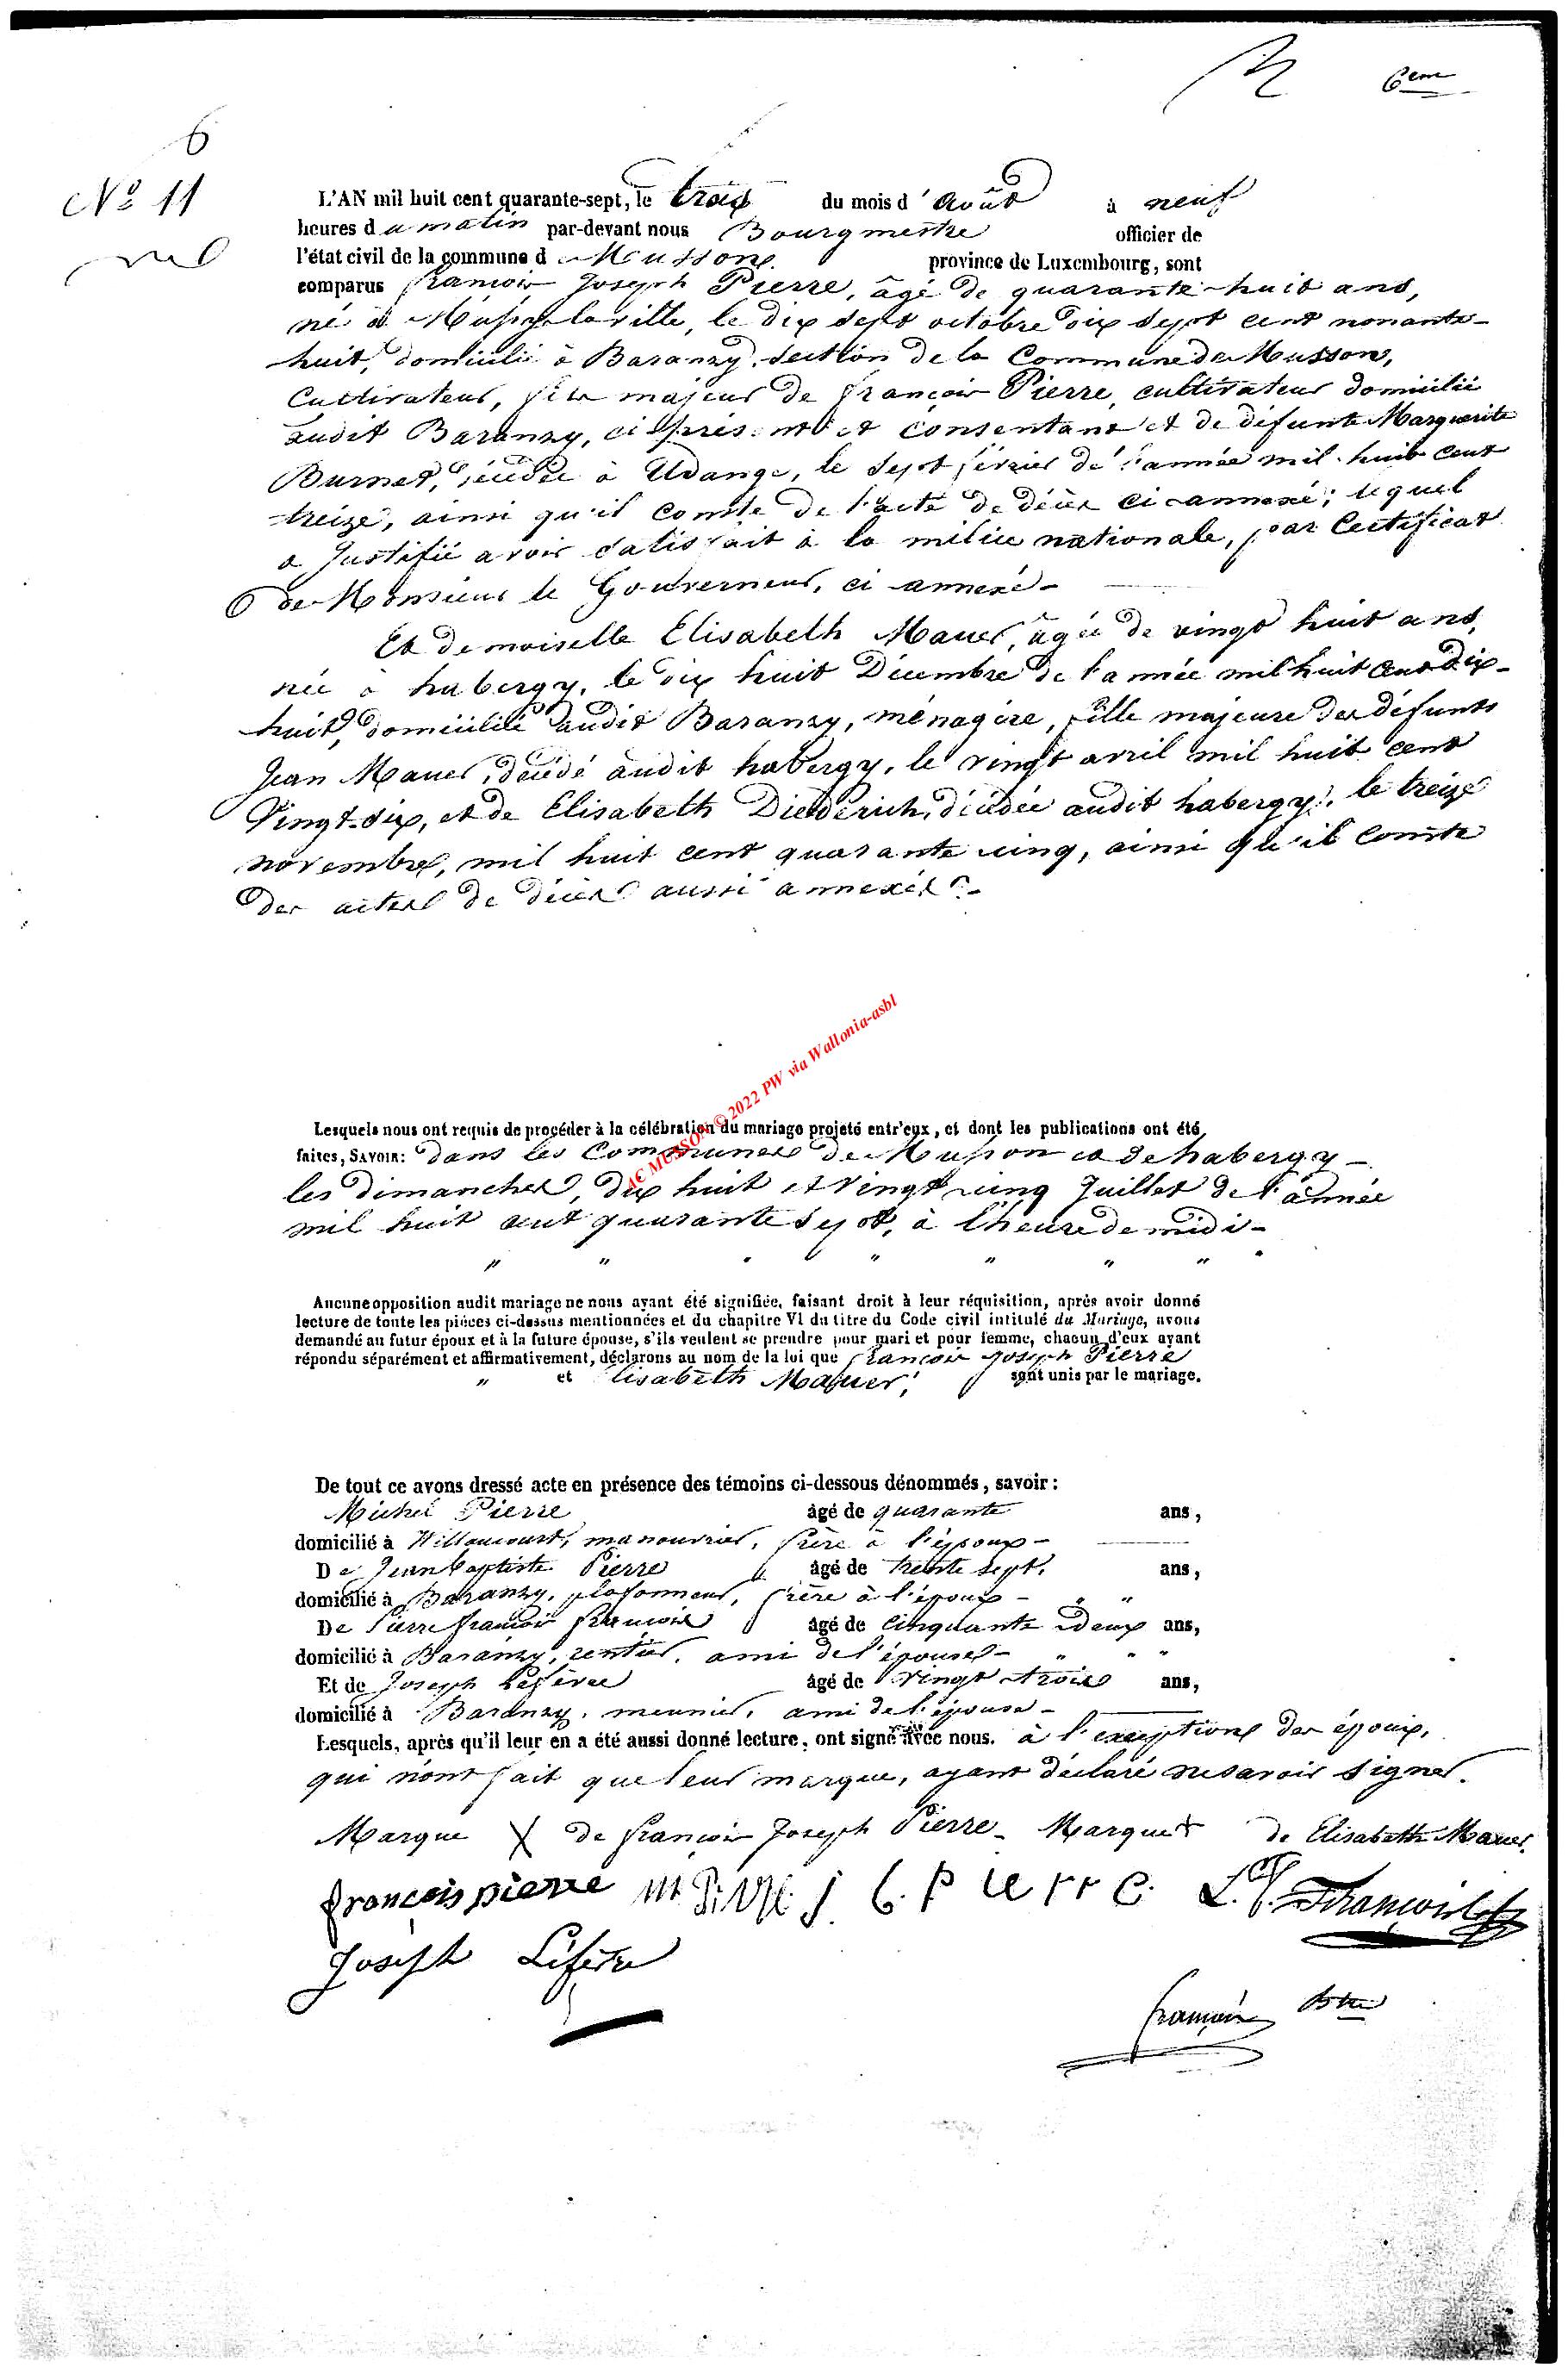 6eme
6
No 11
L'AN mil huit cent quarante-sept, le trois du mois d'Août à neuf
heures du matin par-devant nous Bourgmestre officier de
l'état civil de la commune de Musson province de Luxembourg, sont
comparus françois Joseph Pierre, âgé de quarante-huit ans,
né à Mussy-la-ville, le dix sept octobre dix sept cent nonante-
huit, domicilié à Baranzy, section de la Commune de Musson,
Cultivateur, fils majeur de françois Pierre, cultivateur domicilié
audit Baranzy, ci présent et consentant et de défunte Marguerite
Burnet, décédée à Udange, le sept février de l'année mil-huit cent
treize, ainsi qu'il conste de l'acte de décès ci-annexé; lequel
a Justifié avoir satisfait à la milice nationale, par Certificat
de Monsieur le Gouverneur, ci-annexé-
Et demoiselle Elisabeth Mauer, âgée de vingt huit ans,
née à habergy, le dix huit Décembre de l'année mil huit cent dix-
huit, domiciliée audit Baranzy, ménagère, fille majeure des défunts
Jean Mauer, décédé audit habergy, le vingt avril mil huit cent
Vingt-six, et de Elisabeth Diederich, décédée audit habergy, le treize
novembre, mil huit cent quarante cinq, ainsi qu'il conste
des actes de décès aussi annexés.-
AC MUSSON © 2022 PW via Wallonia-asbl
Lesquels nous ont requis de procéder à la célébration du mariage projeté entr'eux, et dont les publications ont été
faites, SAVOIR: dans les Communes de Musson et de habergy-
les dimanches, dix huit et vingt cinq Juillet de l'année
mil huit cent quarante sept, à l'heure de midi-
" " " " " " " "
Aucune opposition audit mariage ne nous ayant été signifiée, faisant droit à leur réquisition, après avoir donné
lecture de toute les pièces ci-dessus mentionnées et du chapitre VI du titre du Code civil intitulé du Mariage, avons
demandé au futur époux et à la future épouse, s'ils veulent se prendre pour mari et pour femme, chacun d'eux ayant
répondu séparément et affirmativement, déclarons au nom de la loi que françois Joseph Pierre
" et Elisabeth Mauer, sont unis par le mariage.
De tout ce avons dressé acte en présence des témoins ci-dessous dénommés, savoir:
Michel Pierre âgé de quarante ans,
domicilié à Willancourt, manouvrier, frère à l'époux-
De Jean baptiste Pierre âgé de trente sept, ans,
domicilié à Baranzy, plafonneur, frère à l'époux- " "
De Pierre françois françois âgé de cinquante deux ans,
domicilié à Baranzy, rentier, ami de l'épouse- " " "
Et de Joseph Lefèvre âgé de vingt trois ans,
domicilié à Baranzy, meunier, ami de l'épouse-
Lesquels, après qu'il leur en a été aussi donné lecture, ont signé avec nous. à l'exception des époux,
qui n'ont fait que leur marque, ayant déclaré ne savoir signer.
Marque X de françois Joseph Pierre- Marque + de Elisabeth Mauer.
françois pierre M Pierre J. b. Pierre. françois
Joseph Lefèvre
françois